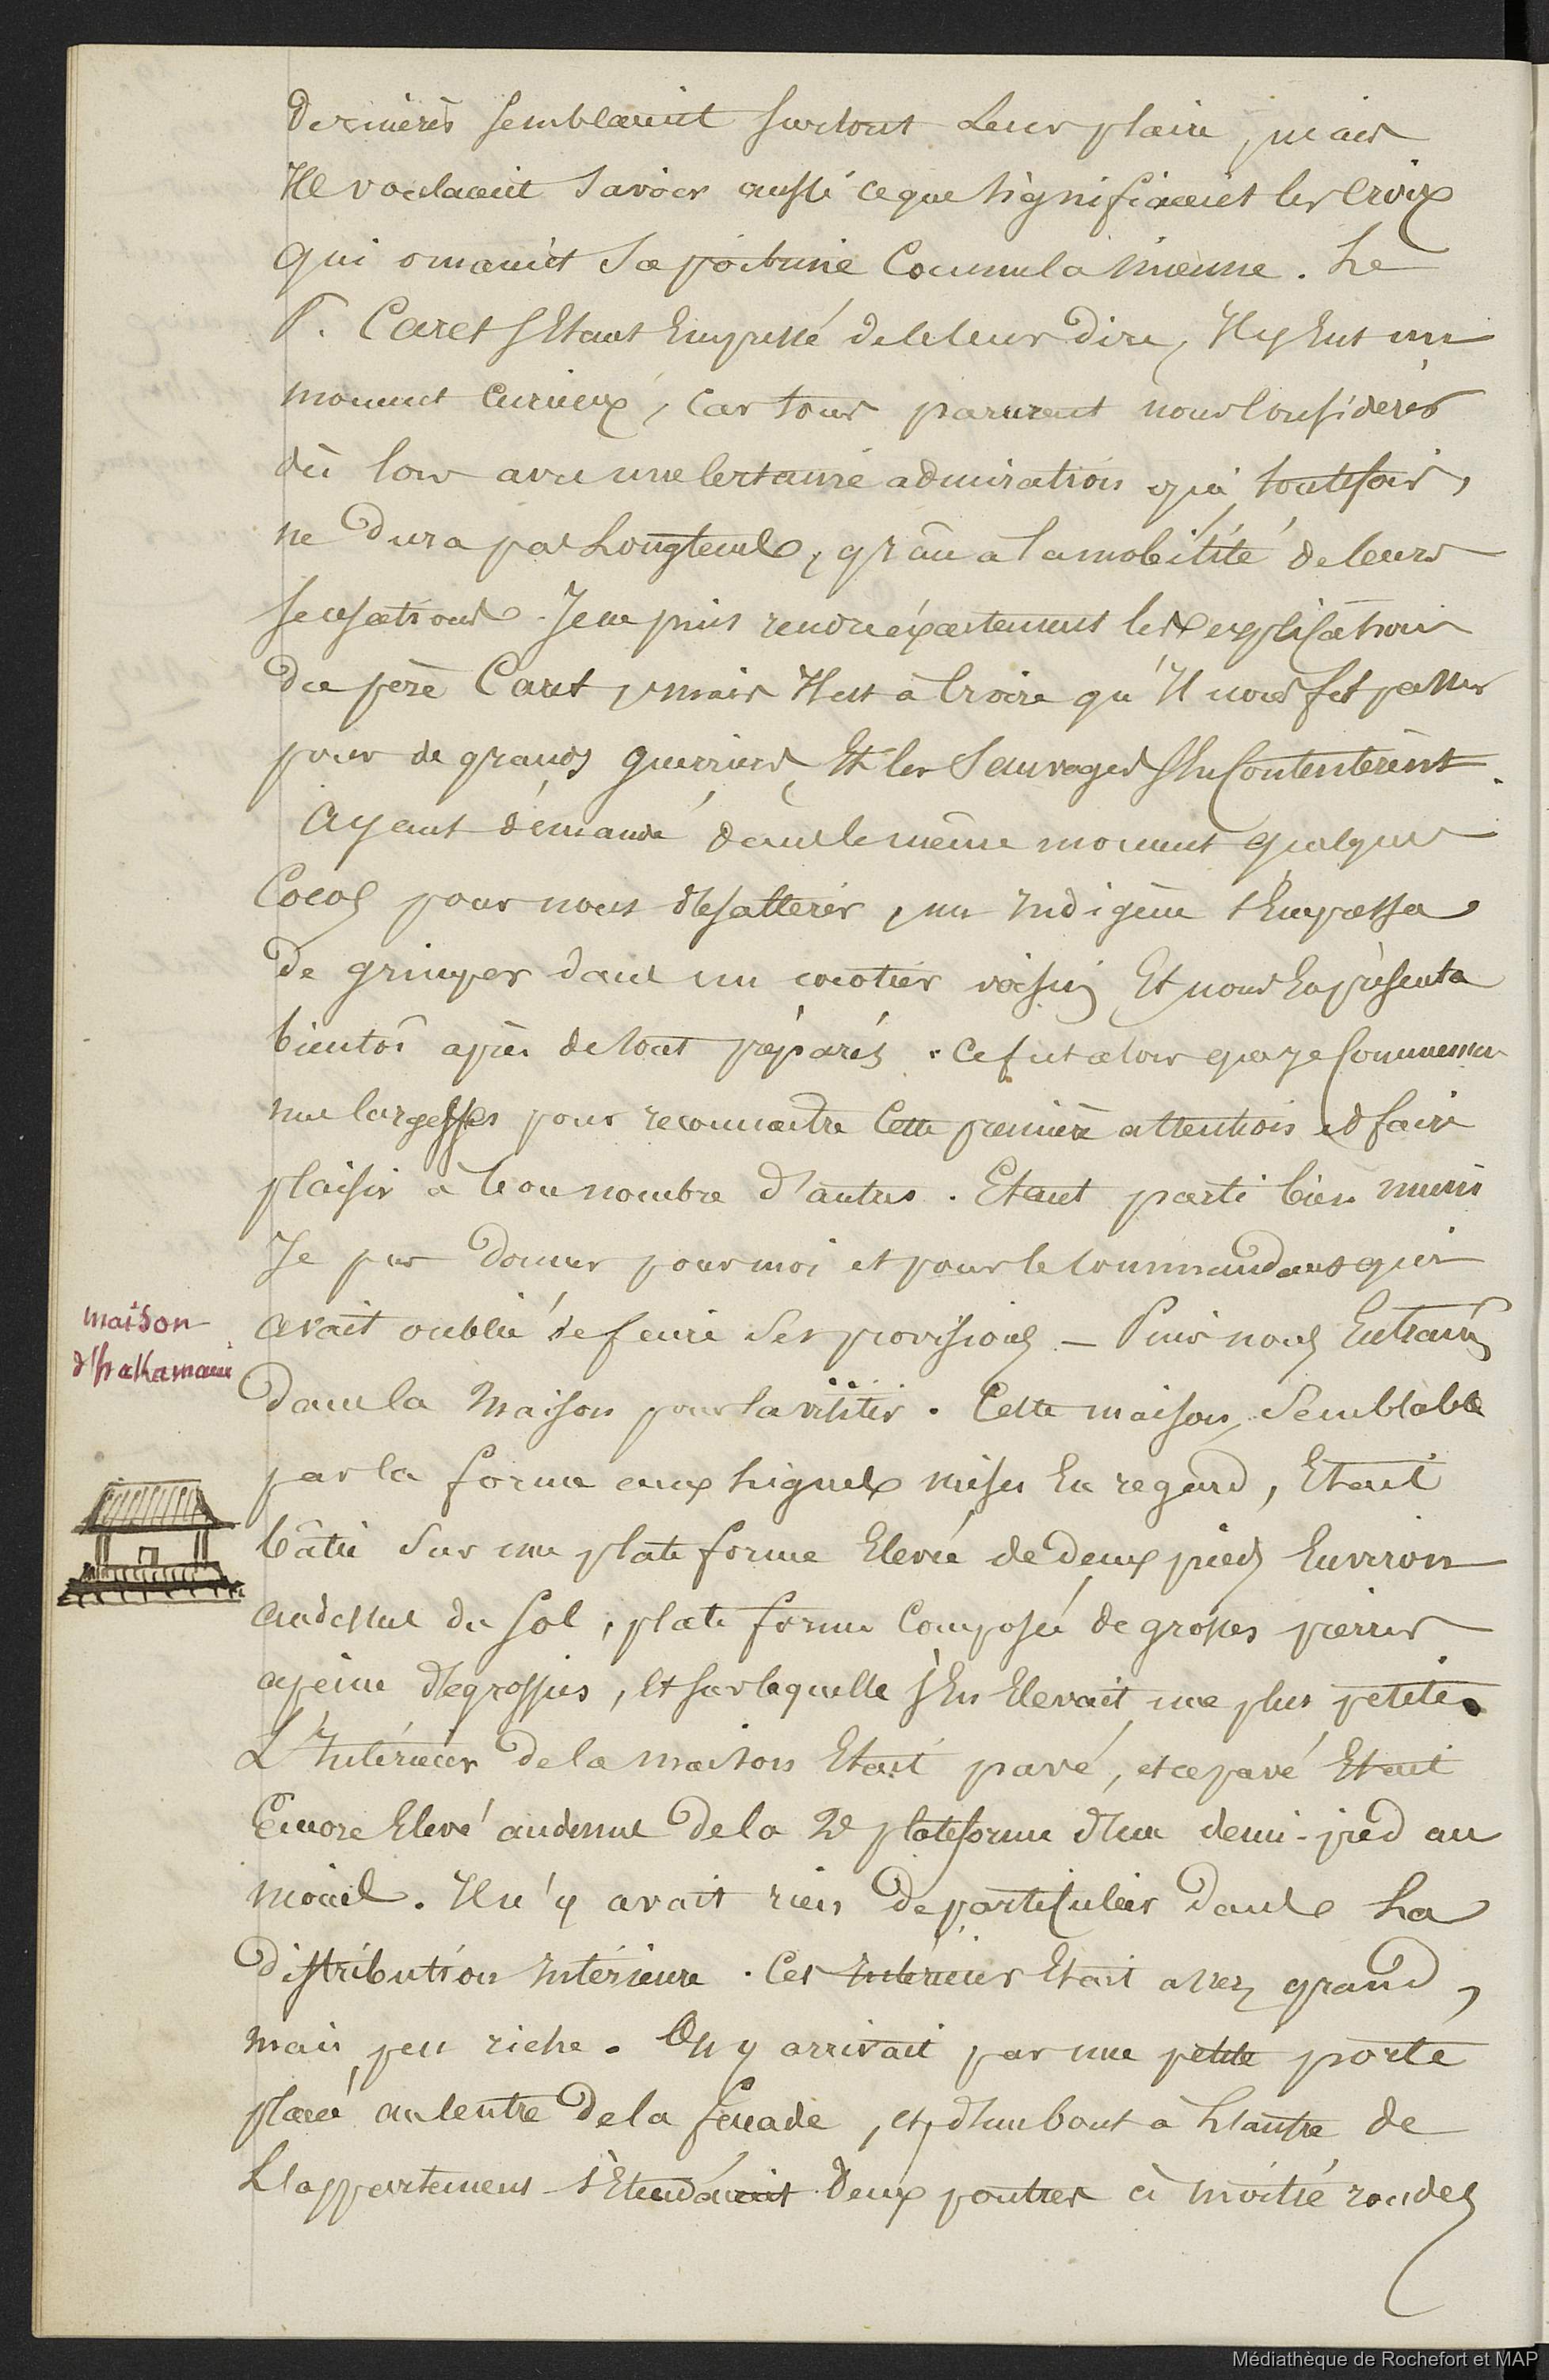 dernières semblaient surtout leur plaire, mais
Ils voulaient savoir aussi ce que signifiaient les croix
qui ornaient sa poitrine comme la mienne. Le
P. Caret s'Etant Empressé de le leur dire, Il y Eut un
moment curieux, car tous parurent nous considérer
dès lors avec une certaine admiration qui, toutefois,
ne dura pas Longtems, grâce a la mobilité de leurs
sensations. Je ne puis rendre éxactement les explications
du père Caret, mais Il est à croire qu'Il nous fit passer
pour de grands guerriers, Et les Sauvages s'En Contentèrent.
Ayant demandé dans le même moment quelques
Cocos pour nous désalterer, un Indigène s'Empressa
de grimper dans un cocotier voisin Et nous En présenta
bientôt après de tout préparés. Ce fut alors que je Commençai
mes largesses pour reconnaitre Cette première attention et faire
plaisir à bon nombre d'autres. Etant parti bien muni
Je pus donner pour moi et pour le Commandant qui
avait oublié de faire ses provisions — Puis nous Entrâmes
dans la Maison pour la visiter. Cette maison, Semblable
par la forme aux lignes mises En regard, Etait
bâtie Sur une plate forme Elevée de deux pieds Environ
audessus du Sol, plate forme Composée de grosses pierres
apeine dégrossies, Et sur laquelle s'En Elevait une plus petite.
L'Intérieur de la maison Etait pavé, et ce pavé Etait
Encore Elevé audessus de la 2e plateforme d'un demi-pied au
moins. Il n'y avait rien de particulier dans La
distribution Intérieure. Cet Intérieur Etait assez grand,
mais peu riche. On y arrivait par une petite porte
placée au Centre de la façade, et, d'un bout à L'autre de
L'appartement s'Etendaient deux poutres à moitié rondes
maison
d'